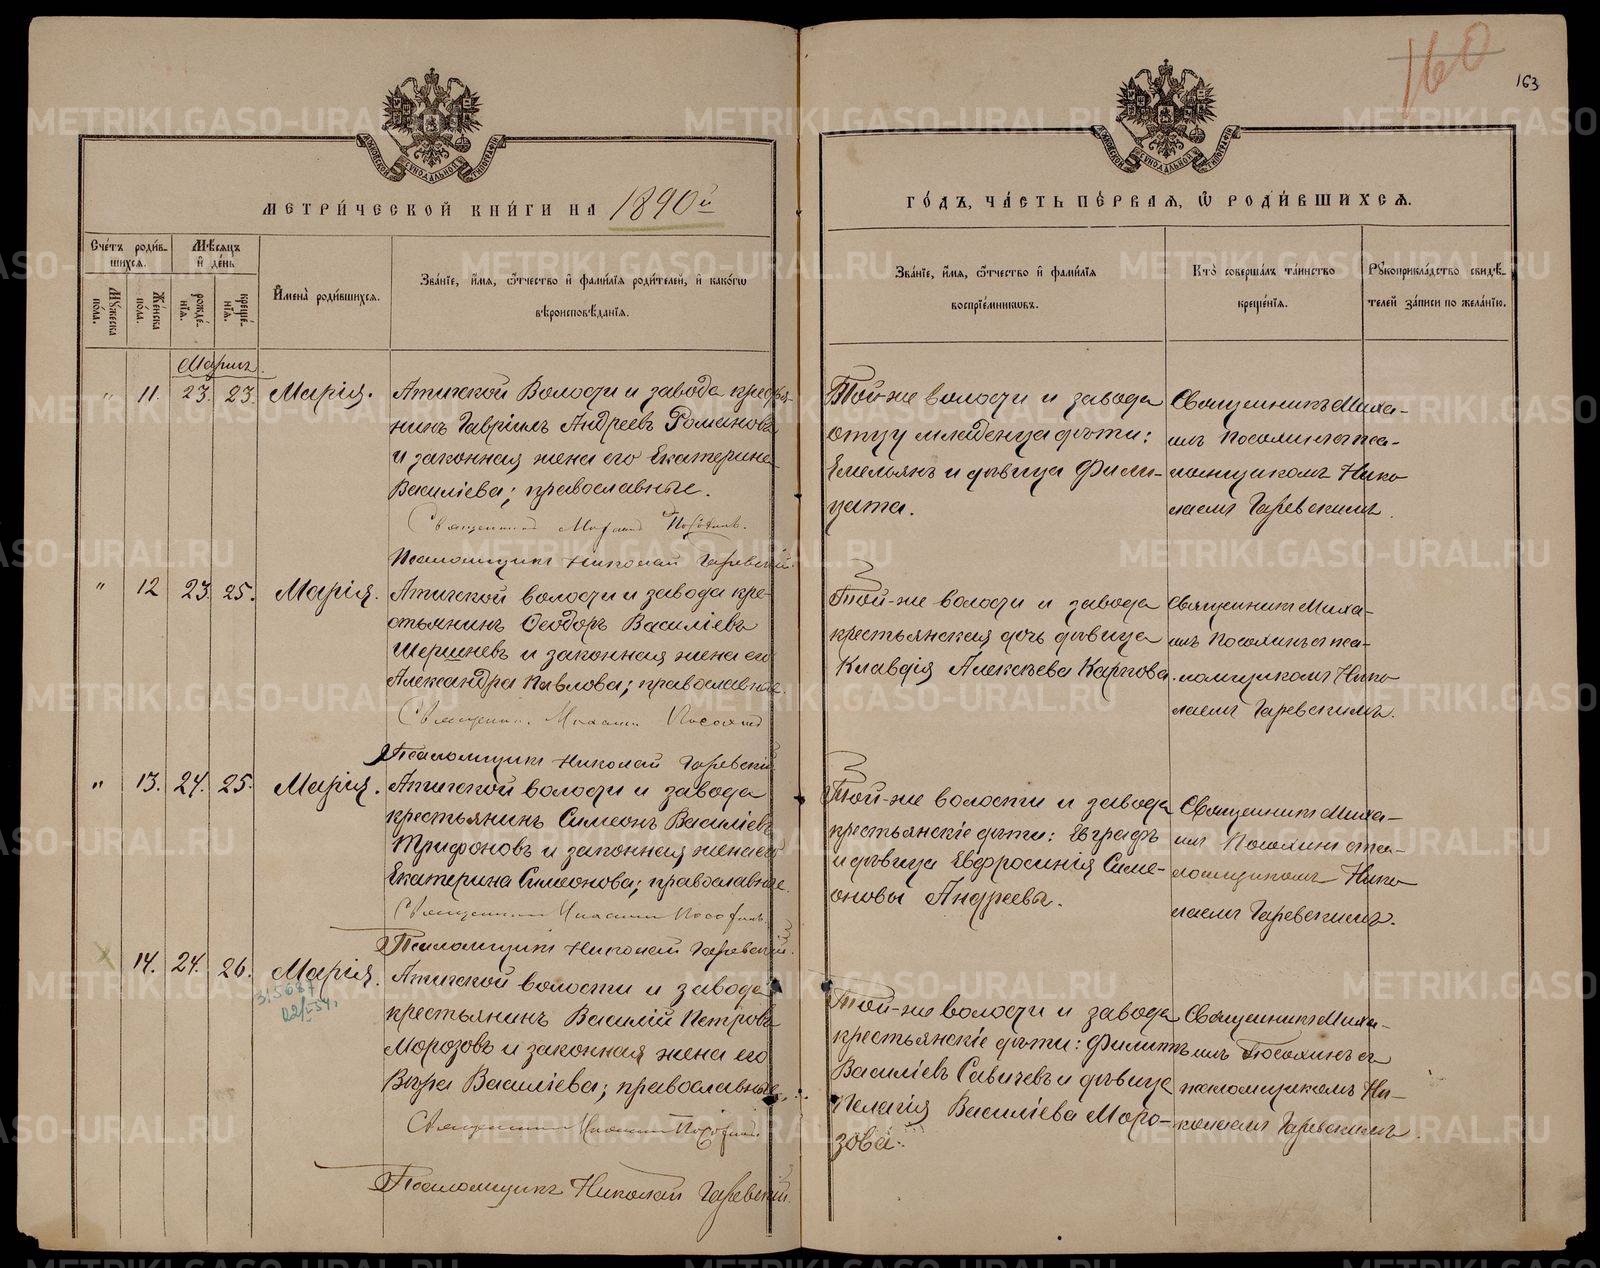 160
163
МЕТРИ́ЧЕСКОЙ КНИ́ГИ НА 1890й
ГО́ДЪ, ЧА́СТЬ ПЕ́РВАЯ, Ѽ РОДИ́ВШИХСЯ.
Сче́тъ роди́вшихся.
Му́жеска по́ла.
Же́нска по́ла.
Мѣ́сяцъ и де́нь
рожде́нія.
креще́нія.
Имена̀ роди́вшихся.
Зва́ніе, и́мя, ѻ҆́тчество и фами́лія роди́телей, и како́гѡ
вѣроисповѣ́данія.
Зва́ніе, и́мя, ѻ҆́тчество и фами́лія
воспріе́мниковъ.
Кто̀ соверша́лъ та́инство
креще́нія.
Рукоприкла́дство свидѣ́-
телей за́писи по жела́нію.
Мартъ.
" 11. 23. 23. Марія.
Атигской Волости и завода кресть-
нинъ Гавріилъ Андреевъ Романовъ
и законная жена его Екатерина
Василіева; православные.
Священникъ Михаилъ Посохинъ.
Псаломщикъ Николай Гаревскій.
Той-же волости и завода
отцу младенца дѣти:
Емельянъ и дѣвица Фили-
цата.
Священникъ Миха-
илъ Посохинъ съ пса-
ломщикомъ Нико
лаемъ Гаревскимъ.
" 12 23. 25. Марія.
Атигской волости и завода кре-
стьянинъ Ѳеодоръ Василіевъ
Шершневъ и законная жена его
Александра Павлова; православные.
Священникъ Михаилъ Посохинъ
Псаломщикъ Николай Гаревскій
Той-же волости и завода
крестьянская дочь дѣвица
Клавдія Алексѣева Карпова.
Священникъ Миха-
илъ Посохинъ съ пса-
ломщикомъ Нико
лаемъ Гаревскимъ.
" 13. 24. 25. Марія.
Атигской волости и завода
крестьянинъ Симеонъ Василіевъ
Трифоновъ и законная жена его
Екатерина Симеонова; православные.
Священникъ Михаилъ Посохинъ
Псаломщикъ Николай Гаревскій.
Той-же волости и завода
крестьянскіе дѣти: Евграфъ
и дѣвица Евфросинія Симе-
оновы Андреевы.
Священникъ Миха-
илъ Посохинъ съ пса-
ломщикомъ Нико
лаемъ Гаревскимъ.
14. 24. 26. Марія.
Атигской волости и завода
крестьянинъ Василій Петровъ
Морозовъ и законная жена его
Вѣра Василіева; православные.
Священникъ Михаилъ Посохинъ
Псаломщикъ Николай Гаревскій.
Той-же волости и завода
крестьянскіе дѣти: Филиппъ
Василіевъ Савичевъ и дѣвица
Пелагія Василіева Моро-
зова.
Священникъ Миха-
илъ Посохинъ съ
псаломщикомъ Ни-
колаемъ Гаревскимъ.
METRIKI.GASO-URAL.RU